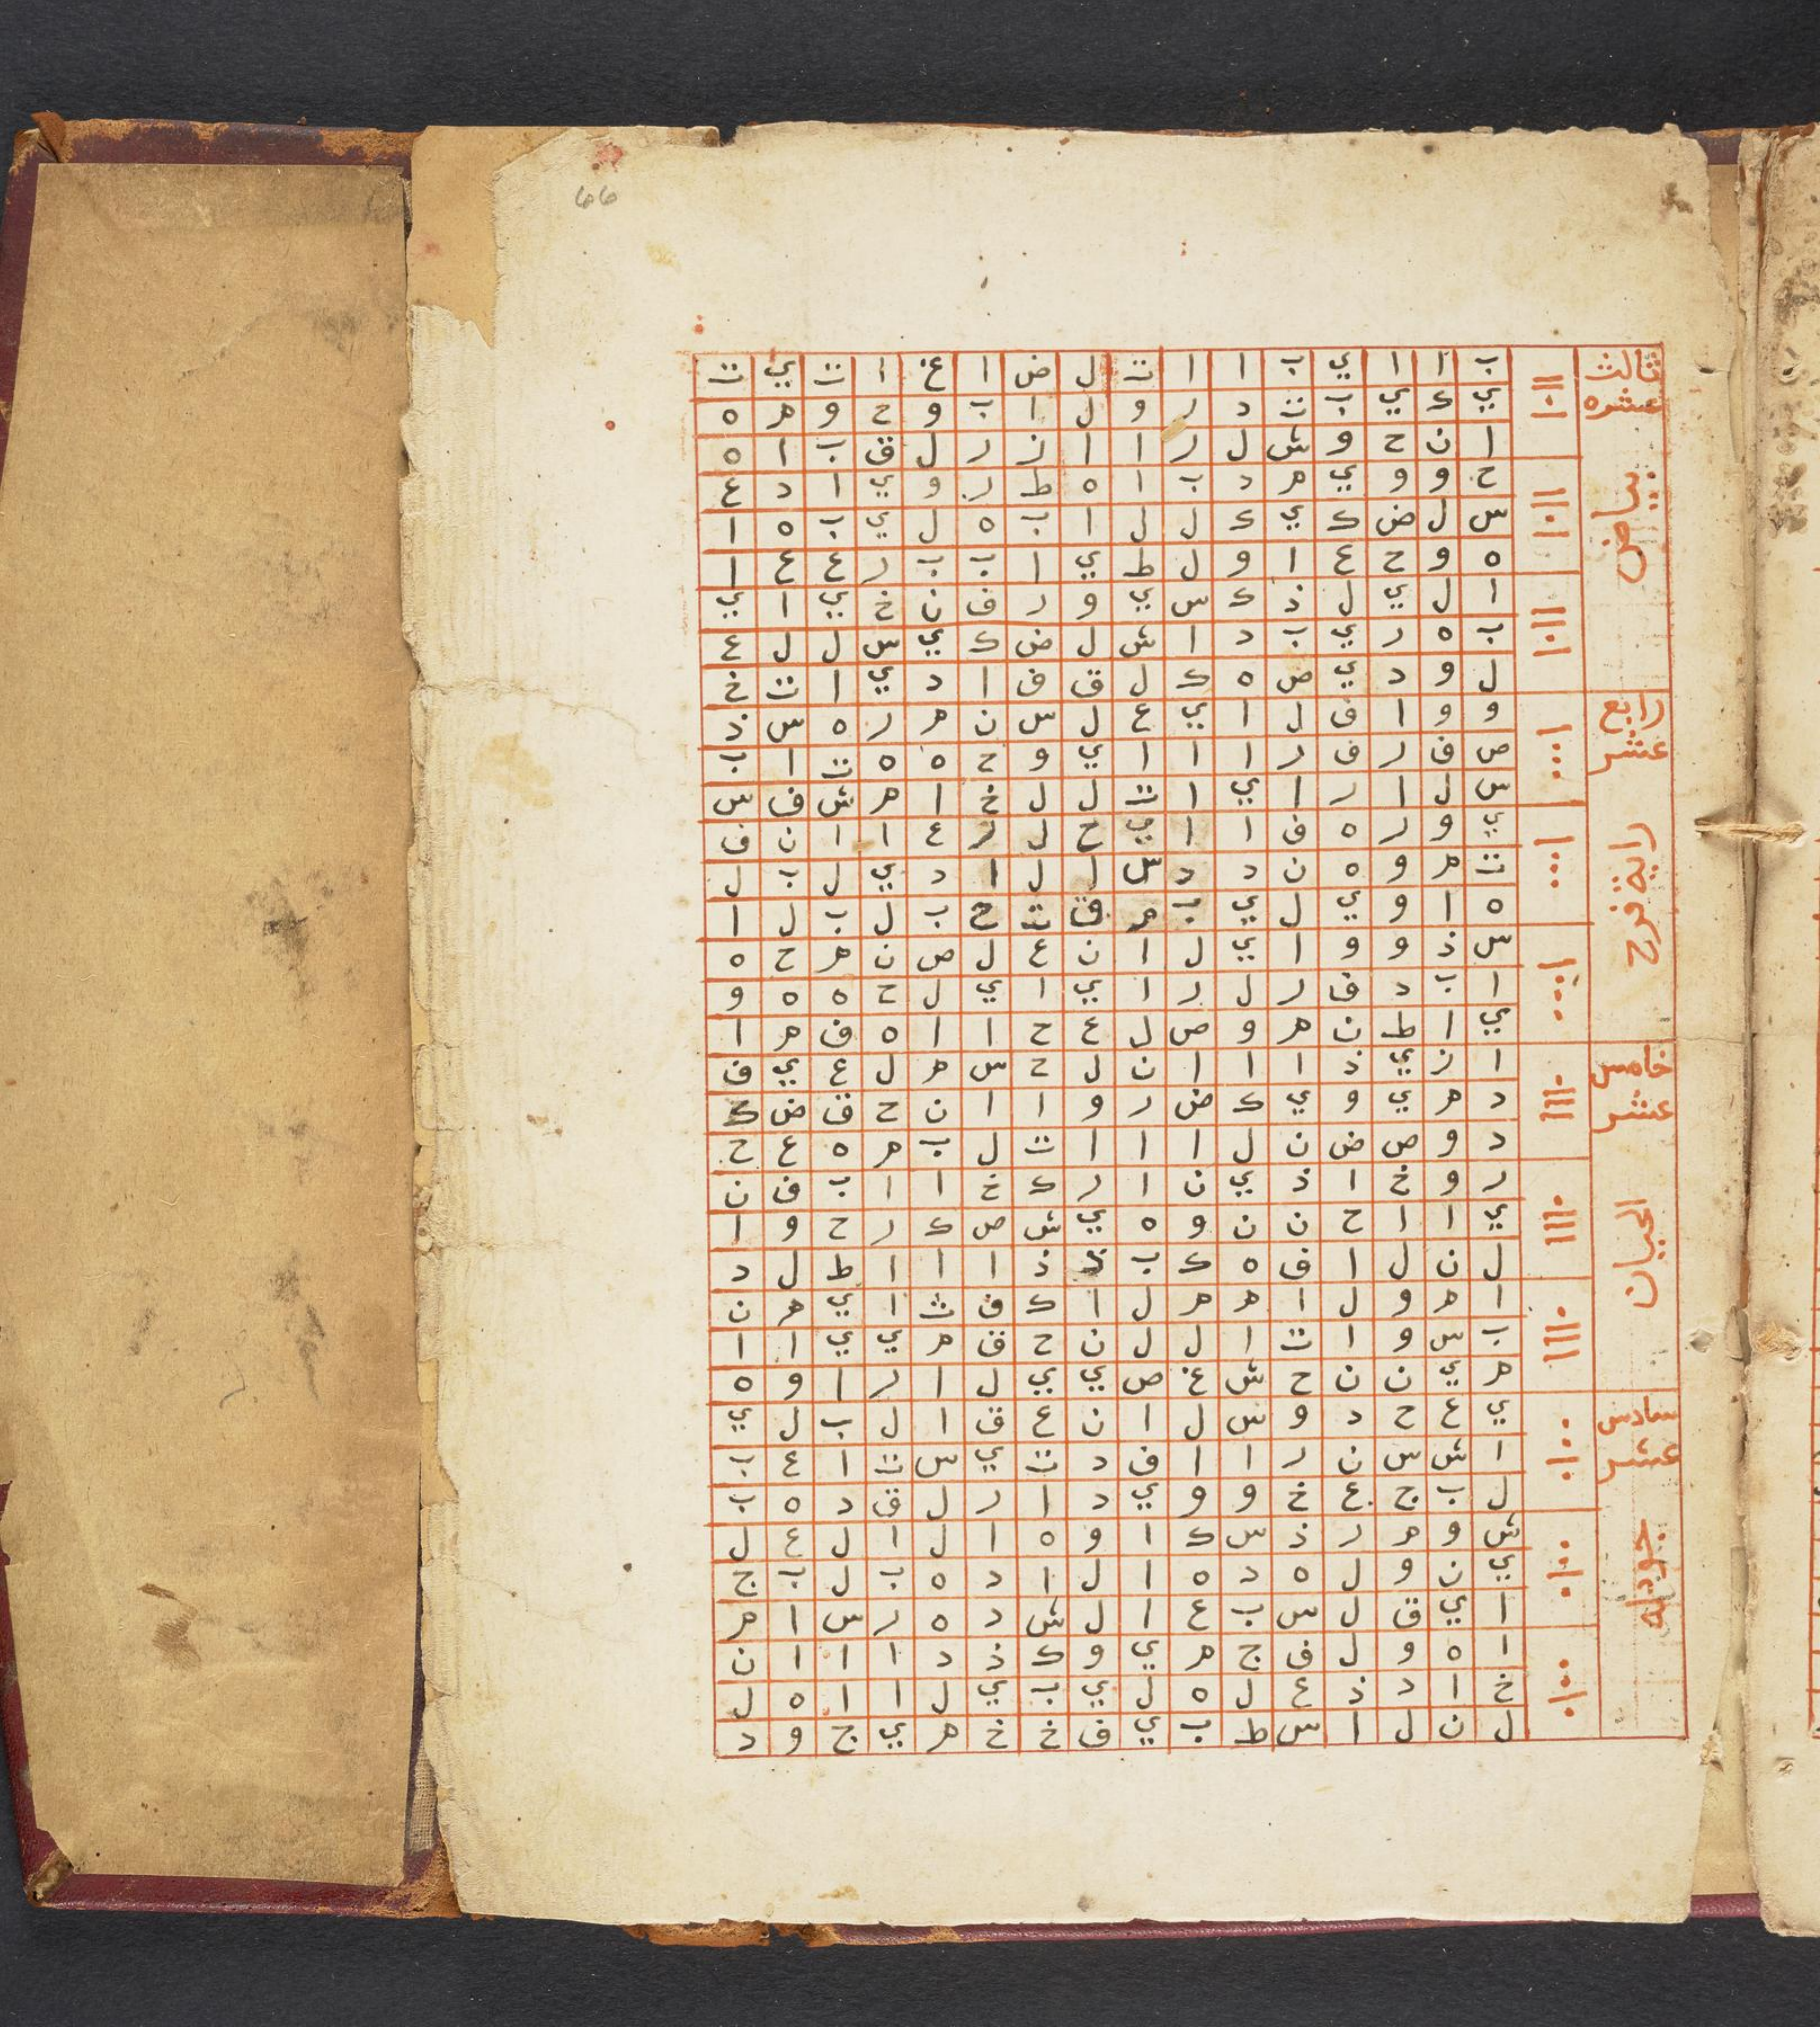 66
ثالث
عشره
بياض
ب ا ا ي ب ا ا ت ل ض ا غ ا ت ي ت
ي ك ي ب ت د ر و ل ا ب و ح و م ه
ا ن ح و ش ل ر ا ا ز ر ل ق ب ا ه
ح و و ي م د ب ا ه ط ر و ي ا د ع
س ل ض ك ي ك ل ل ا ب ه ل ي ب ه ا
ه و ح ع ا و ل ط ي ا ب ب ر ع ع ا
ا ل ي ل ذ ك س ي و ر ف ن خ ي ا ي
ب ه ر ي ب د ا ش ل ض ك ي س ل ل ع
ل و د ي ص ه ك ل ق ف ا د ي ا ت خ
رابع
عشر
راية فرح
و و ا ف ل ا ي ع ل س ن م ر ه س ذ
ص ف ر ف ر ا ا ا ي و ح ه ه ت ا ب
س ل ا ر ا ي ا ت ل ل خ ا م ش ف س
ي و ر ه ف ا ا ي ح ل ر ع ا ا ن ف
ت م و ه ن د د س ا ل ا د ي ل ب ل
ه ا و ي ل ي ب م ق ت ح ب ل ب ل ا
س ذ و و ا ي ل ا ن ع ل ص ن م ح ه
ا ب د ف ر ل ر ا ي ا ي ل ح ه ه و
ي ا ط ن م و ص ل ع ح ا ا ه ف م ا
خامس
عشر
الحيان
ا ز ي ذ ا ا ا ن ل ح س م ل ع ي ف
د م ي و ي ك ض ر و ا ا ن ح ق ض ك
د و ص ض ن ل ا ا ا ت ل ب م ه ع ح
ر و خ ا ذ ي ن ا ر ك خ ا ا ب ف ن
ي ا ا ح ن ن و ه ي ش ص ك ر ح و ا
ل ن ل ا ف ه ك ب ذ ا ا ا ط ل د
ا م و ل ا م م ل ا ك ف ث ا ي م ن
ب س و ا ت ا ل ل ن ح ق م ي ي ا ا
م ي ن ن ح ش غ ص ي ي ل ا ر ا و ه
سادس
عشر
جودله
ي ع ح د و س ل ا ن ع ق ا ل ب ل ي
ا ش س ن ر ا ا ف د ت ي س ت ا ع ب
ل ب ج ع خ و و ي د ا ر ل ق د ه ب
ش و م ر ذ س ك ا و ه ا ل ا ل ع ل
ي ن و ل ه د ه ا ل ا د ه ب ل ب ج
ا ي ق ل س ب ع ا ل ش د ه ر س ا م
ا ه و ل ف ج م ي و ك ذ د ا ا ا ن
خ ا د ذ ع ل ه ل ي ب ي ل ا ا ه ل
ل ن ل ا س ط ب ي ف خ خ م ي ج و د